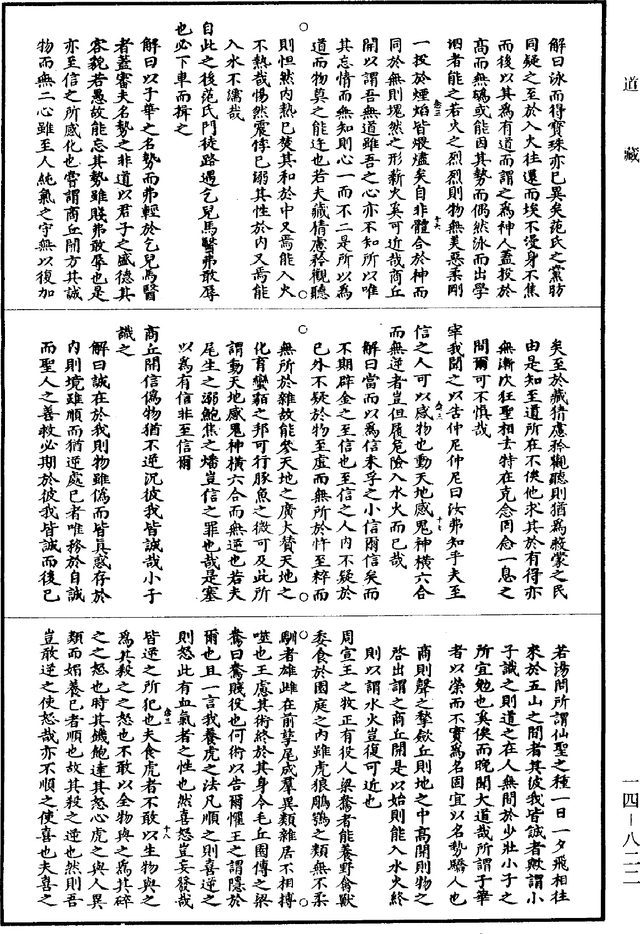 道藏
解曰泳而得寶珠亦已異矣范氏之黨昉
同疑之至於入火往還而埃不漫身不焦
而後以其爲有道而謂之爲神人蓋投於
高而無䃣或能因其勢而偶然泳而出學
泗者能之若火之烈烈則物無美惡柔剛
一投於煙焰皆煨燼矣自非體合於神而
同於無則塊然之形新火奚可近哉商丘
開以謂吾無道雖吾之心亦不知所以唯
其忘情而無知則心一而不二是所以爲
道而物莫之能迕也若夫藏猜慮矜觀聽
則怛然內熱已焚其和於中又焉能入火
不熱哉惕然震悸已溺其性於內又焉能
入水不濡哉
自此之後范氏門徒路遇乞兒馬醫弗敢辱
也必下車而揖之
解曰以子華之名勢而弗輕於乞兒馬醫
者蓋審夫名勢之非道以君子之盛德其
容貌若愚故能忘其勢雖賤弗敢辱也是
亦至信之所感化也嘗謂商丘開方其誠
物而無二心雖至人純氣之守無以復加
矣至於藏猜慮矜觀聽則猶爲敝蒙之民
由是知至道所在不俟他求其於有得亦
無漸次狂聖相去特在克念罔念一息之
間爾可不慎哉
宰我聞之以告仲尼仲尼曰汝弗知乎夫至
信之人可以感物也動天地感鬼神橫六合
而無逆者豈但履危險入水火而已哉
解曰當而以爲信未孚之小信爾信矣而
不期辟金之至信也至信之人內不疑於
己外不疑於物至虛而無所於忤至粹而
無所於雜故能參天地之廣大贊天地之
化育蠻貊之邦可行豚魚之微可及此所
謂動天地感鬼神橫六合而無逆也若夫
尾生之溺鮑焦之燔豈信之罪也哉是塞
以爲有信非至信爾
商丘開信僞物猶不逆況彼我皆誠哉小子
識之
解曰誠在於我則物雖僞而皆真惑存於
內則境雖順而猶逆處己者唯務於自誠
而聖人之善救必期於彼我皆誠而後已
若湯問所謂仙聖之種一日一夕飛相往
來於五山之間者其彼我皆誠者歟謂小
子識之則道之在人無間於少壯小子之
所宜勉也奚俟而晚聞大道哉所謂子華
者以榮而不實爲名固宜以名勢驕人也
商則聲之摯歛丘則地之中高開則物之
啓出謂之商丘開是以始則能入水火終
則以謂水火豈復可近也
周宣王之牧正有役人梁鴦者能養野禽獸
委食於園庭之內雖虎狼鵰鶚之類無不柔
馴者雄雌在前孳尾成羣異類雜居不相搏
噬也王慮其術終於其身令毛丘園傳之梁
鴦曰鴦賤役也何術以告爾懼王之謂隱於
爾也且一言我養虎之法凡順之則喜逆之
則怒此有血氣者之性也然喜怒豈妄發哉
皆逆之所犯也夫食虎者不敢以生物與之
爲其殺之之怒也不敢以全物與之爲其碎
之之怒也時其饑飽達其怒心虎之與人異
類而媚養己者順也故其殺之逆也然則吾
豈敢逆之使怒哉亦不順之使喜也夫喜之
一四—八二二